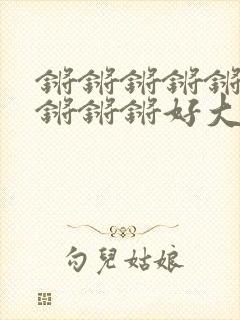 锵锵锵锵锵
锵锵锵好大
勺兒姑娘